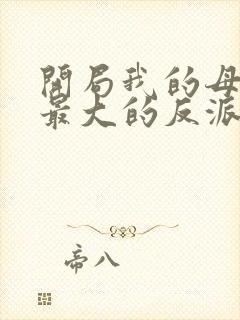 開局我的母
最大的反派
帝八